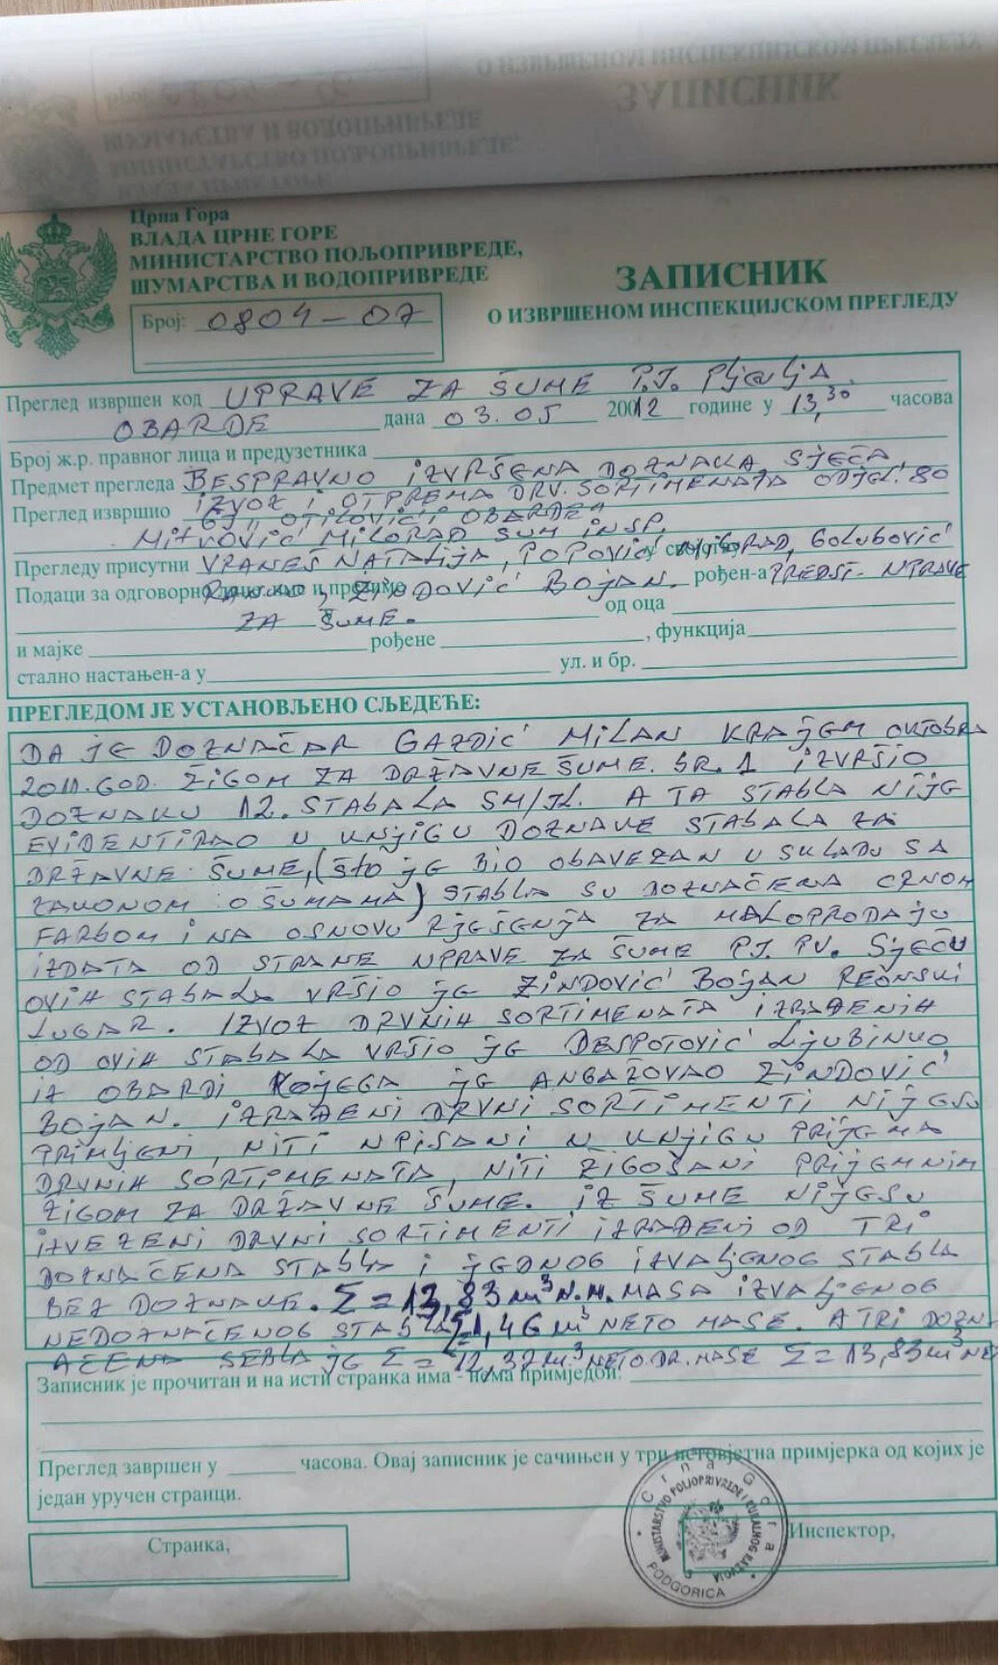 Црна Гора
ВЛАДА ЦРНЕ ГОРЕ
МИНИСТАРСТВО ПОЉОПРИВРЕДЕ,
ШУМАРСТВА И ВОДОПРИВРЕДЕ
Број: 0804-07
ЗАПИСНИК
О ИЗВРШЕНОМ ИНСПЕКЦИЈСКОМ ПРЕГЛЕДУ
Преглед извршен код UPRAVE ZA ŠUME P.J. Pljevlja
OBARDE дана 03.05 20012 године у 13,30 часова
Број ж.р. правног лица и предузетника
Предмет прегледа BESPRAVNO IZVRŠENA DOZNAKA, SJEČA,
Преглед извршио IZVOZ I OTPREMA DRV. SORTIMENATA ODJEL. 80
GJ „OTILOVIĆI OBARDE"
MITROVIĆ MILORAD ŠUM INSP.
Прегледу присутни VRANEŠ NATALIJA, POPOVIĆ MIGRAD, GOLUBOVIĆ
Подаци за одговорно ZINDOVIĆ BOJAN. рођен-а PREDST. UPRAVE
ZA ŠUME. од оца
и мајке рођене , функција
стално настањен-а у ул. и бр.
ПРЕГЛЕДОМ ЈЕ УСТАНОВЉЕНО СЉЕДЕЋЕ:
DA JE DOZNAČAR GAZDIĆ MILAN KRAJEM OKTOBRA
2011.GOD. ŽIGOM ZA DRŽAVNE ŠUME. BR. 1 IZVRŠIO
DOZNAKU 12. STABALA SM/JL. A TA STABLA NIJE
EVIDENTIRAO U KNJIGU DOZNAKE STABALA ZA
DRŽAVNE ŠUME, (ŠTO JE BIO OBAVEZAN U SKLADU SA
ZAKONOM O ŠUMAMA) STABLA SU DOZNAČENA CRNOM
FARBOM I NA OSNOVU RJEŠENJA ZA MALOPRODAJU
IZDATA OD STRANE UPRAVE ZA ŠUME P.J. PV. SJEČU
OVIH STABALA VRŠIO JE ZINDOVIĆ BOJAN REONSKI
LUGAR. IZVOZ DRVNIH SORTIMENATA IZRAĐENIH
OD OVIH STABALA VRŠIO JE DESPOTOVIĆ LJUBINKO
IZ OBARDI KOJEGA JE ANGAŽOVAO ZINDOVIĆ
BOJAN. IZRAĐENI DRVNI SORTIMENTI NIJESU
PRIMLJENI, NITI UPISANI U KNJIGU PRIJEMA
DRVNIH SORTIMENATA, NITI ŽIGOSANI PRIJEMNIM
ŽIGOM ZA DRŽAVNE ŠUME. IZ ŠUME NIJESU
IZVEZENI DRVNI SORTIMENTI IZRAĐENI OD TRI
DOZNAČENA STABLA I JEDNOG IZVALJENOG STABLA
BEZ DOZNAKE. Σ = 13,83 m³ N.M. MASA IZVALJENOG
NEDOZNAČENOG STABLA Σ 1,46 m³ NETO MASE. A TRI DOZN
AČENA STBLA JE Σ = 12,37 m³ NETO DR. MASE Σ = 13,83 m³ NE
Записник је прочитан и на исти странка има - нема примједби:
Преглед завршен у часова. Овај записник је сачињен у три истовјетна примјерка од којих је
један уручен странци.
Странка,
Инспектор,
Crna Gora
MINISTARSTVO POLJOPRIVREDE I RURALNOG RAZVOJA
PODGORICA